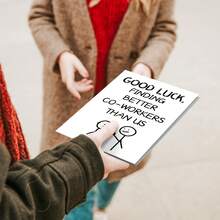 GOOD LUCK,
FINDING
BETTER
CO-WORKERS
THAN US